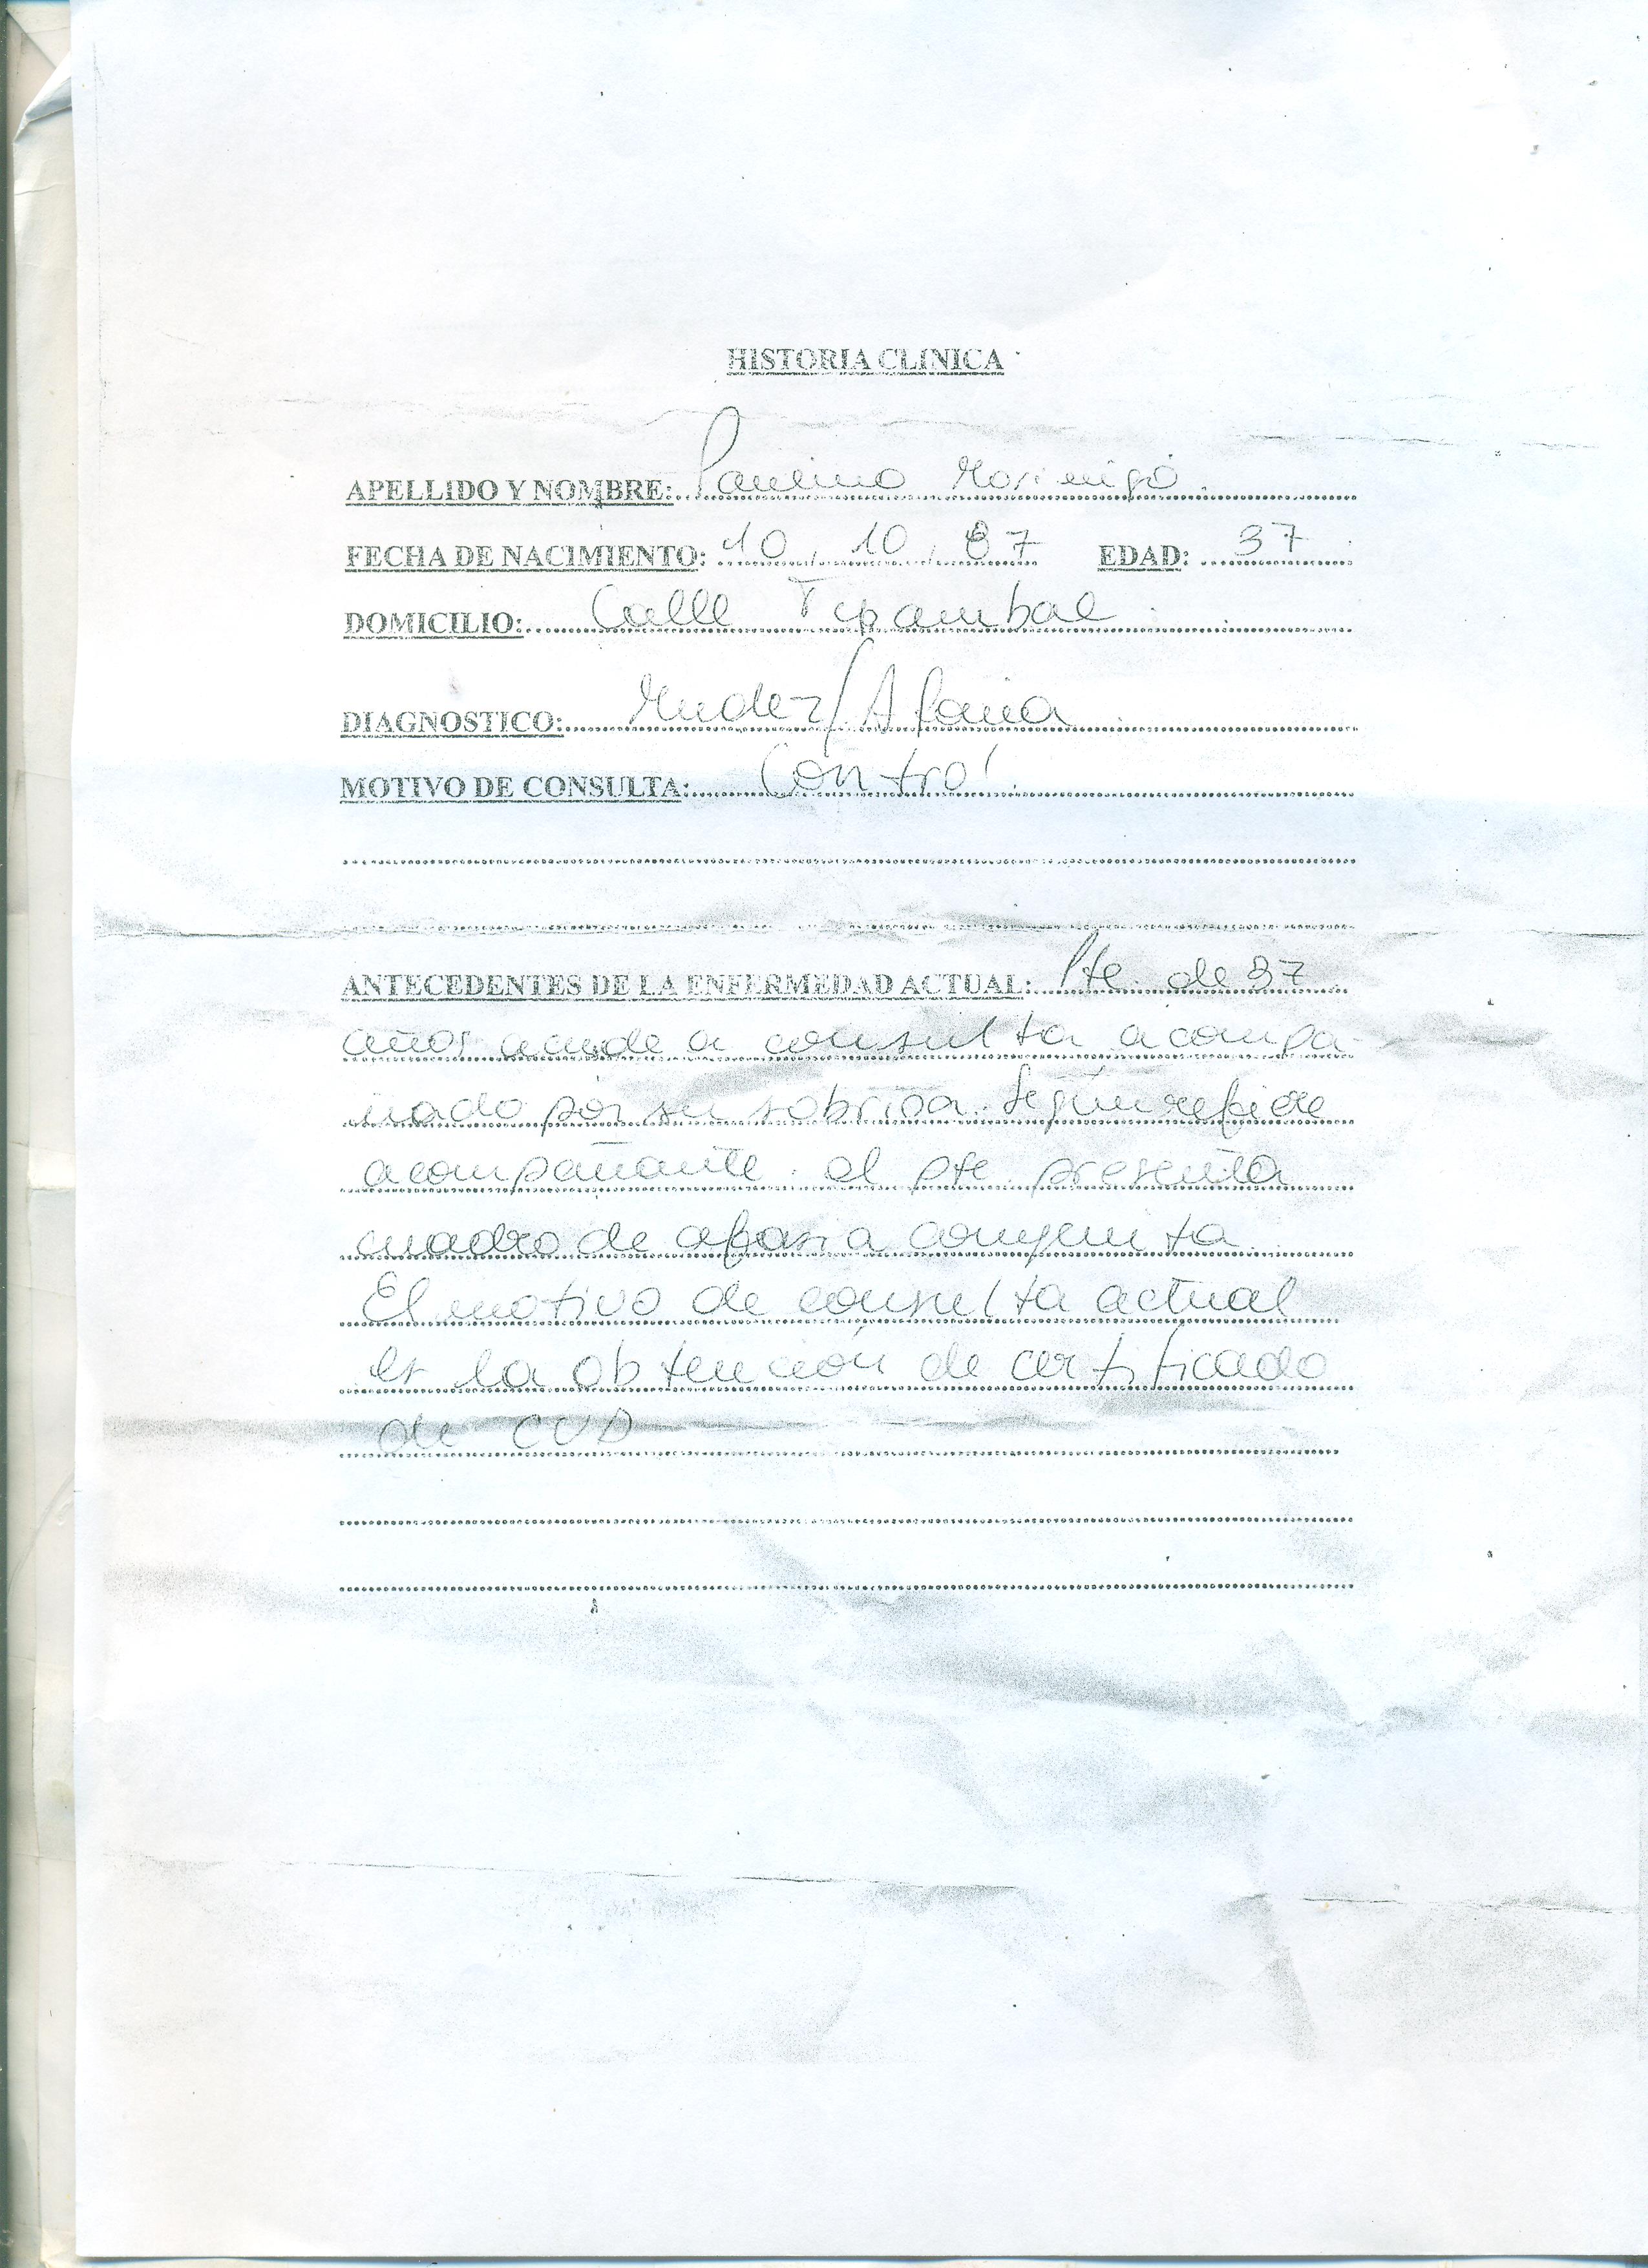 HISTORIA CLINICA
APELLIDO Y NOMBRE: Paulino Morinigo
FECHA DE NACIMIENTO: 10, 10, 87 EDAD: 37
DOMICILIO: Calle
DIAGNOSTICO: Mudez/Afasia
MOTIVO DE CONSULTA: Control
ANTECEDENTES DE LA ENFERMEDAD ACTUAL: Pte. de 37
años acude a consulta acompa-
ñado por su sobrina. Según refiere
acompañante. el pte. presenta
cuadro de afasia congenita.
El motivo de consulta actual
es la obtención de certificado
de CUD